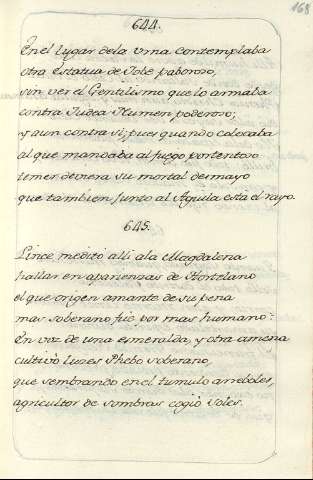 168
644.
En el lugar dela Vrna contemplaba
otra Estatua de Jobe paboroso,
sin ver el Gentilismo que lo armaba
contra Judea Numen poderoso;
y aun contra si, pues quando colocaba
al que mandaba al fuego portentoso
temer deviera su mortal desmayo
que tambien junto al Aguila està el rayo.
645.
Lince meditò alli ala Magdalena
hallar en aparienzas de Hortelano
el que origen amante de su pena
mas soberano fuè por mas humano:
En voz de una esmeralda, y otra amena
cultivò luzes Phebo soberano,
que sembrando en el tumulo arreboles,
agricultor de sombras cogiò Soles.